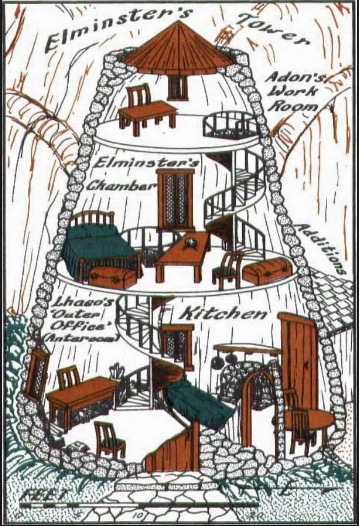 Elminster's Tower
Adon's
Work
Room
Elminster's
Chamber
Additions
Lhaeo's
'Outer
Office'
(Anteroom)
Kitchen
FEET
10